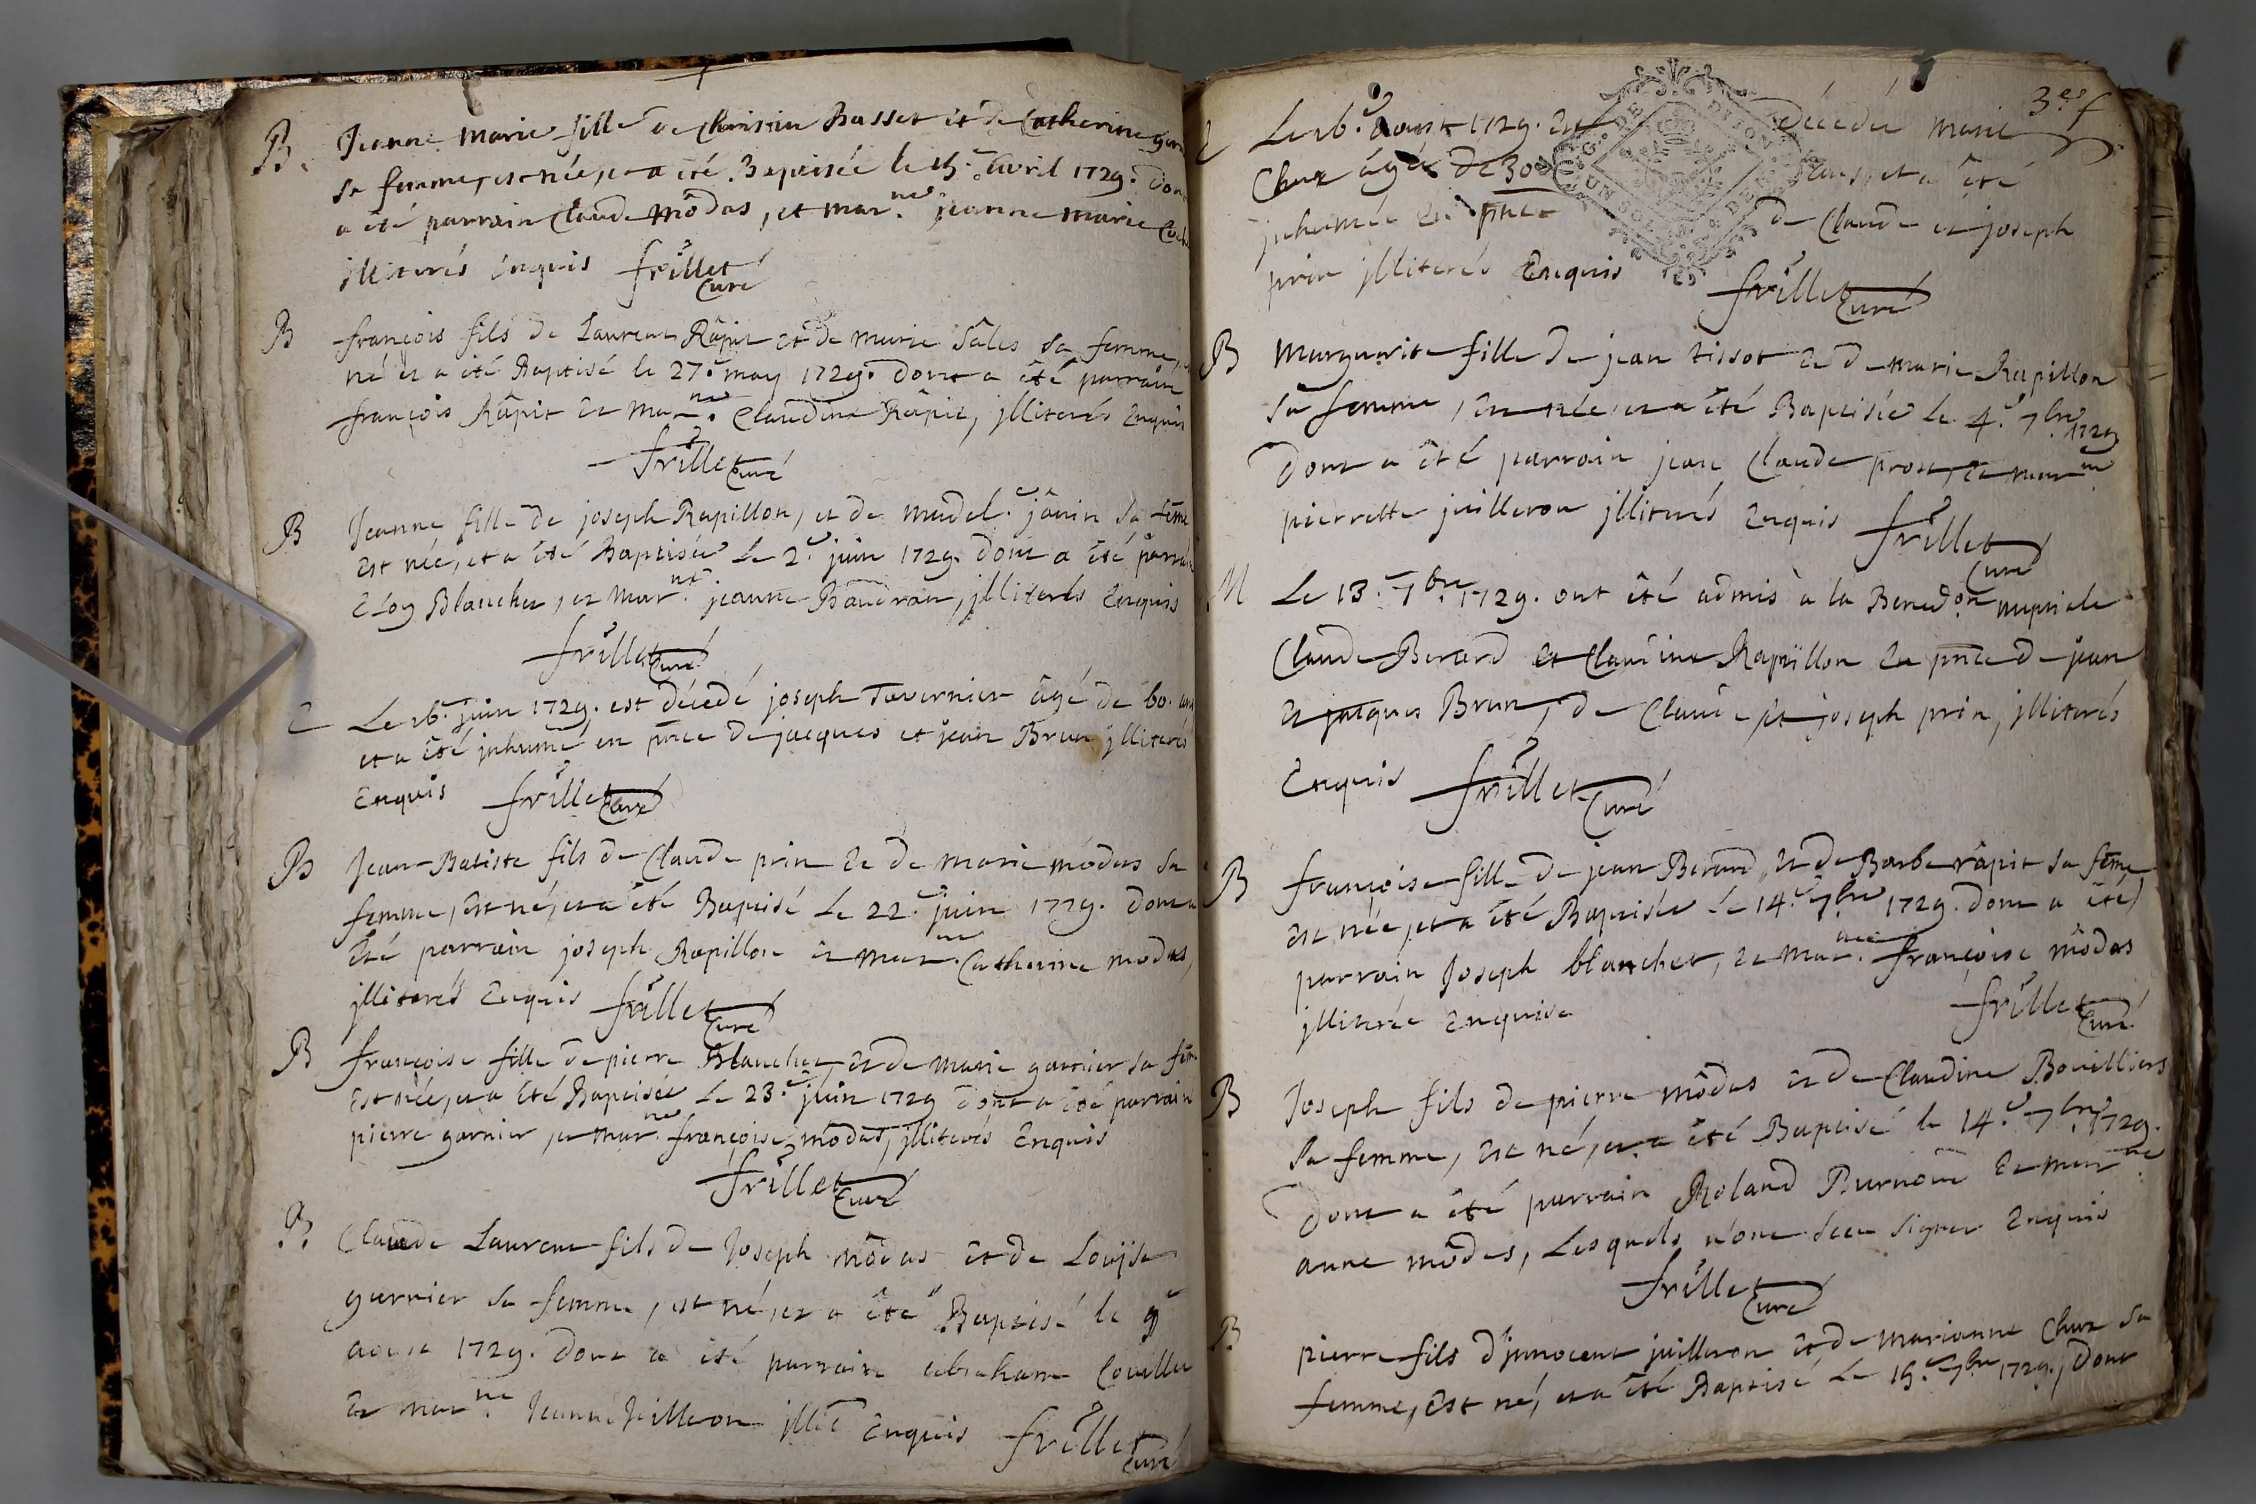 B. Jeanne Marie fille de Christin Basset et de Catherine
sa femme, est née, et a été Baptisée le 15.e avril 1729. dont
a été parrain Claude môdas, et mar.ne jeanne marie
illiterés enquis frillet Curé
B françois fils de Laurent Râpit et de Marie Sâles sa femme,
né et a été Baptisé le 27.e may 1729. dont a été parrain
françois Râpit et mar.ne Claudine Râpit, jlliterés enquis
frillet Curé
B Jeanne fille de joseph Rapillon, et de madel. jânin sa fême
est née, et a été Baptisée le 2.e juin 1729. dont a été parrain
Eloy Blanchet, et mar.ne jeanne Baudran, jlliterés enquis
frillet Curé
Le 16.e juin 1729. est décedé joseph Tavernier âgé de 60. ans
et a été jnhumé en pnce de jacques et jean Brun jlliterés
Enquis frillet Curé
B Jean-Batiste fils de Claude prin et de marie môdas sa
femme, est né, et a été Baptisé le 22.e juin 1729. dont a
été parrain joseph Rapillon et mar.ne Catherine modas,
jlliterés enquis frillet Curé
B françoise fille de pierre Blanchet et de marie garnier sa fême
est née, et a été Baptisée le 23.e juin 1729 dont a été parrain
pierre garnier, et mar.ne françoise môdas, jlliterés Enquis
frillet Curé
B. Claude Laurent fils de Joseph môdas et de Loüise
guerrier sa femme, est né, et a été Baptisé le 9.e
aoust 1729. dont a été parrain abraham
et mar.ne Jeanne juilleron jllit Enquis frillet Curé
3.e f
Le 16.e Aoust 1729. est décedée marie
Chux âgée de 30 ans, et a été
jnhumée en pnce de Claude et joseph
prin jlliterés Enquis frillet Curé
B Marguerite fille de jean tissot et de marie Rapillon
sa femme, est née, et a été Baptisée le 4.e 7.bre 1729
dont a été parrain jean Claude prost, et mar.ne
pierrette juilleron jlliterés enquis frillet Curé
M Le 13.e 7.bre 1729. ont été admis à la Bened.on nuptiale
Claude Berard et Claudine Rapillon en pnce de jean
et jacques Brun, de Claude et joseph prin, jlliterés
Enquis frillet Curé
B françoise fille de jean Berard, et de Barbe râpit sa fême
est née, et a été Baptisée le 14.e 7.bre 1729. dont a été
parrain Joseph blanchet, et mar.ne françoise môdas
jlliterée enquise frillet Curé
B Joseph fils de pierre môdas et de Claudine Bouilliers
sa femme, est né, et a été Baptisé le 14.e 7.bre 1729.
dont a été parrain Roland Burnoud et mar.ne
anne môdas, Lesquels n'ont sceu signer enquis
frillet Curé
B pierre fils d'jnnocent juilleron et de marianne Chux sa
femme, Est né, et a été Baptisé le 15.e 7.bre 1729., dont